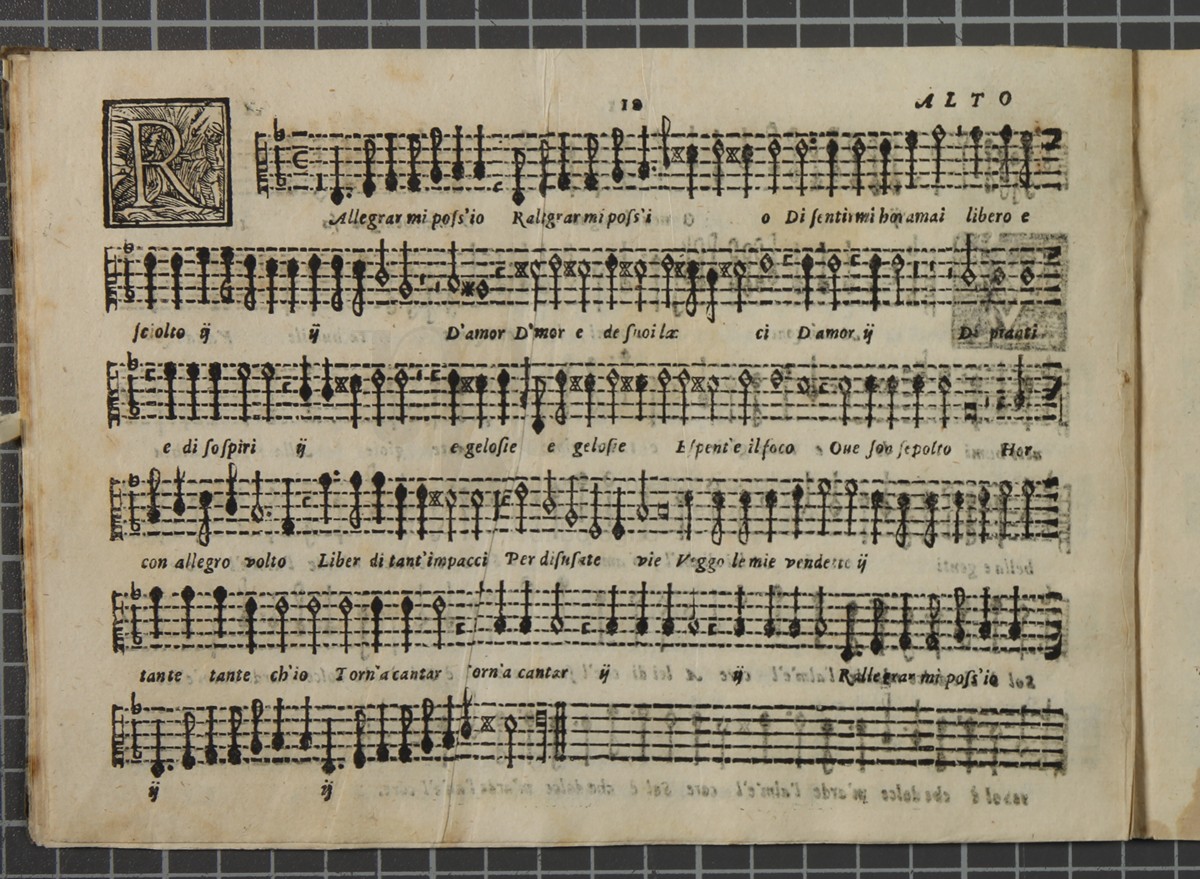 12 ALTO
R
Allegrar mi poſs'io Ralegrar mi poſs'i o Di ſentirmi horamai libero e
ſciolto ij ij D'amor D'mor e de ſuoi læ ci D'amor ij Di pianti
e di ſoſpiri ij e geloſie e geloſie Eſpent'e il foco Oue ſon ſepolto Hor
con allegro volto Liber di tant'impacci Per diſuſate vie Veggo le mie vendette ij
tante tante ch'io Torn'a cantar orn'a cantar ij ij Rallegrar mi poſs'io
ij ij